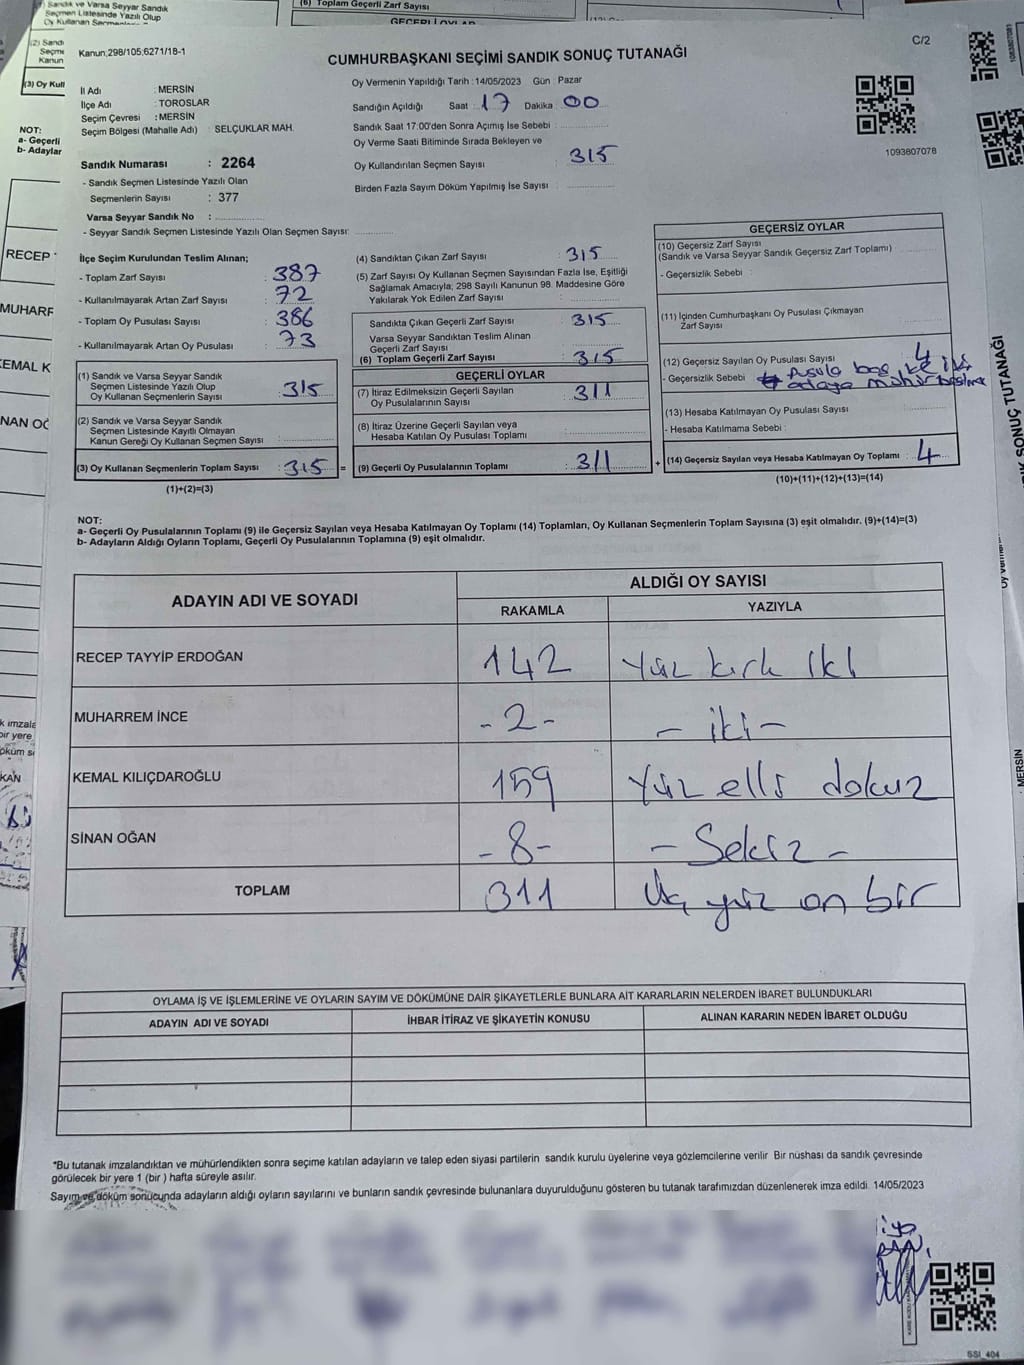 Kanun;298/105;6271/18-1
C/2
CUMHURBAŞKANI SEÇİMİ SANDIK SONUÇ TUTANAĞI
İl Adı : MERSİN
İlçe Adı : TOROSLAR
Seçim Çevresi : MERSİN
Seçim Bölgesi (Mahalle Adı) : SELÇUKLAR MAH.
Sandık Numarası : 2264
- Sandık Seçmen Listesinde Yazılı Olan
Seçmenlerin Sayısı : 377
Varsa Seyyar Sandık No :
- Seyyar Sandık Seçmen Listesinde Yazılı Olan Seçmen Sayısı:
Oy Vermenin Yapıldığı Tarih : 14/05/2023 Gün : Pazar
Sandığın Açıldığı Saat : 17 Dakika : 00
Sandık Saat 17:00'den Sonra Açımış İse Sebebi :
Oy Verme Saati Bitiminde Sırada Bekleyen ve
Oy Kullandırılan Seçmen Sayısı : 315
Birden Fazla Sayım Döküm Yapılmış İse Sayısı :
1093807078
İlçe Seçim Kurulundan Teslim Alınan;
- Toplam Zarf Sayısı : 387
- Kullanılmayarak Artan Zarf Sayısı : 72
- Toplam Oy Pusulası Sayısı : 386
- Kullanılmayarak Artan Oy Pusulası : 73
(1) Sandık ve Varsa Seyyar Sandık
Seçmen Listesinde Yazılı Olup
Oy Kullanan Seçmenlerin Sayısı : 315
(2) Sandık ve Varsa Seyyar Sandık
Seçmen Listesinde Kayıtlı Olmayan
Kanun Gereği Oy Kullanan Seçmen Sayısı :
(3) Oy Kullanan Seçmenlerin Toplam Sayısı : 315 =
(1)+(2)=(3)
(4) Sandıktan Çıkan Zarf Sayısı : 315
(5) Zarf Sayısı Oy Kullanan Seçmen Sayısından Fazla İse, Eşitliği
Sağlamak Amacıyla; 298 Sayılı Kanunun 98. Maddesine Göre
Yakılarak Yok Edilen Zarf Sayısı :
Sandıkta Çıkan Geçerli Zarf Sayısı : 315
Varsa Seyyar Sandıktan Teslim Alınan
Geçerli Zarf Sayısı :
(6) Toplam Geçerli Zarf Sayısı : 315
GEÇERLİ OYLAR
(7) İtiraz Edilmeksizin Geçerli Sayılan
Oy Pusulalarının Sayısı : 311
(8) İtiraz Üzerine Geçerli Sayılan veya
Hesaba Katılan Oy Pusulası Toplamı :
(9) Geçerli Oy Pusulalarının Toplamı : 311 +
GEÇERSİZ OYLAR
(10) Geçersiz Zarf Sayısı
(Sandık ve Varsa Seyyar Sandık Geçersiz Zarf Toplamı) :
- Geçersizlik Sebebi :
(11) İçinden Cumhurbaşkanı Oy Pusulası Çıkmayan
Zarf Sayısı :
(12) Geçersiz Sayılan Oy Pusulası Sayısı : 4
- Geçersizlik Sebebi : Pusula boş ve iki
adaya mühür basılmış
(13) Hesaba Katılmayan Oy Pusulası Sayısı :
- Hesaba Katılmama Sebebi :
(14) Geçersiz Sayılan veya Hesaba Katılmayan Oy Toplamı : 4
(10)+(11)+(12)+(13)=(14)
NOT:
a- Geçerli Oy Pusulalarının Toplamı (9) ile Geçersiz Sayılan veya Hesaba Katılmayan Oy Toplamı (14) Toplamları, Oy Kullanan Seçmenlerin Toplam Sayısına (3) eşit olmalıdır. (9)+(14)=(3)
b- Adayların Aldığı Oyların Toplamı, Geçerli Oy Pusulalarının Toplamına (9) eşit olmalıdır.
ADAYIN ADI VE SOYADI ALDIĞI OY SAYISI
RAKAMLA YAZIYLA
RECEP TAYYİP ERDOĞAN 142 Yüz kırk iki
MUHARREM İNCE -2- - iki -
KEMAL KILIÇDAROĞLU 159 Yüz elli dokuz
SİNAN OĞAN -8- - Sekiz -
TOPLAM 311 Üç yüz on bir
OYLAMA İŞ VE İŞLEMLERİNE VE OYLARIN SAYIM VE DÖKÜMÜNE DAİR ŞİKAYETLERLE BUNLARA AİT KARARLARIN NELERDEN İBARET BULUNDUKLARI
ADAYIN ADI VE SOYADI İHBAR İTİRAZ VE ŞİKAYETİN KONUSU ALINAN KARARIN NEDEN İBARET OLDUĞU
*Bu tutanak imzalandıktan ve mühürlendikten sonra seçime katılan adayların ve talep eden siyasi partilerin sandık kurulu üyelerine veya gözlemcilerine verilir Bir nüshası da sandık çevresinde
görülecek bir yere 1 (bir ) hafta süreyle asılır.
Sayım ve döküm sonucunda adayların aldığı oyların sayılarını ve bunların sandık çevresinde bulunanlara duyurulduğunu gösteren bu tutanak tarafımızdan düzenlenerek imza edildi. 14/05/2023
SSİ_404